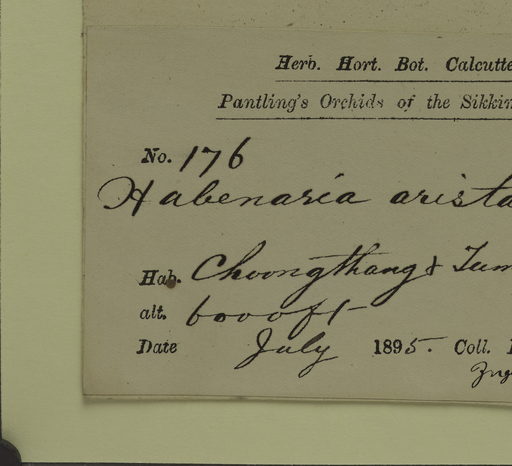 Herb. Hort. Bot. Calcutte
Pantling's Orchids of the Sikkin
No. 176
Habenaria arista
Hab. Choongthang & Tum
alt. 6000 ft
Date July 1895. Coll.